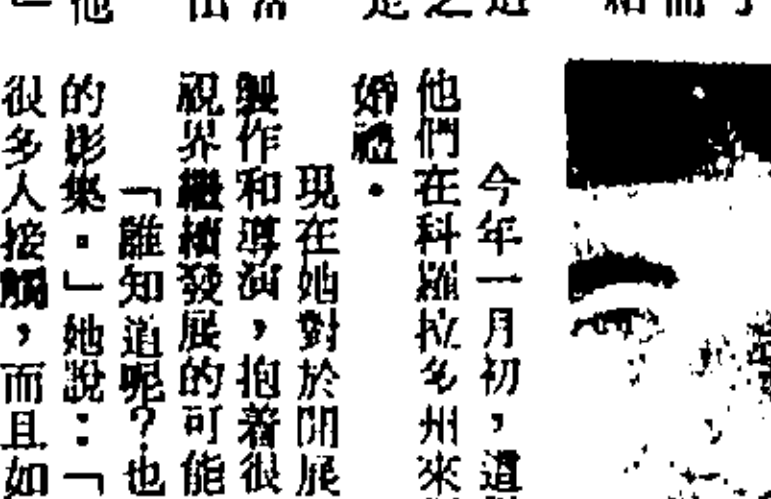 今年一月初，這
他們在科羅拉多州來
婚禮。
現在她對於開展
製作和導演，抱着很
視界繼續發展的可能
「誰知道呢？也
的影集。」她說：「
很多人接觸，而且如